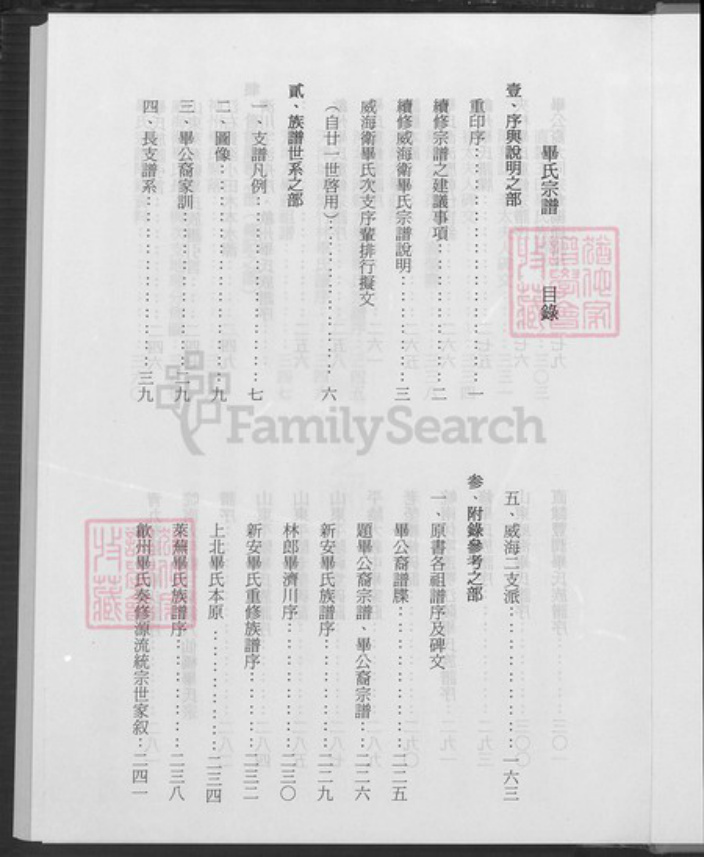 畢氏宗譜　目錄
壹、序與說明之部
重印序………………一
續修宗譜之建議事項………二
續修威海衛畢氏宗譜說明………三
威海衛畢氏次支序輩排行擬文
（自廿一世啓用）………六
貳、族譜世系之部
一、支譜凡例………七
二、圖像………九
三、畢公裔家訓………二九
四、長支譜系………三九
五、威海二支派………一六三
參、附錄參考之部
一、原書各祖譜序及碑文
畢公裔譜牒………二二五
題畢公裔宗譜、畢公裔宗譜………二二六
新安畢氏族譜序………二二九
林郎畢濟川序………二三〇
新安畢氏重修族譜序………二三二
上北畢氏本原………二三四
萊蕪畢氏族譜序………二三八
歙州畢氏奏修源流統宗世家叙…二四一
FamilySearch